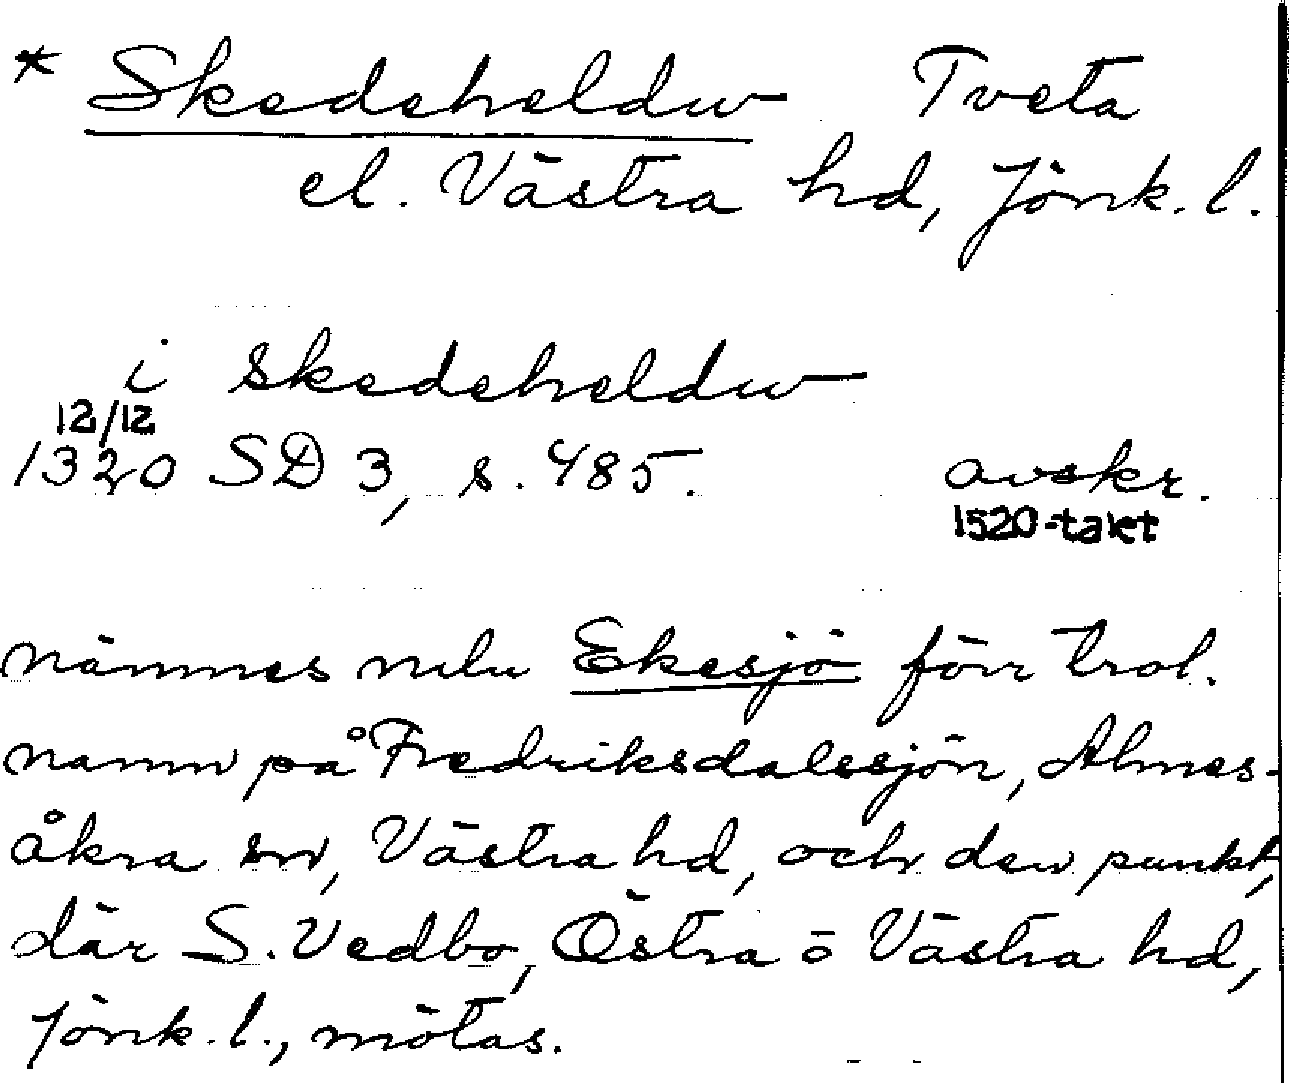 * Skedeheldu Tveta
el. Västra hd, Jönk. l.
i skedeheldu
12/12
1320 SD 3, s. 485. avskr.
1520-talet
nämnes mlu Ekesjö förr trol.
namn på Fredriksdalssjön, Almes-
åkra sn, Västra hd, och den punkt,
där S. Vedbo, Östra o Västra hd,
Jönk. l., mötas.